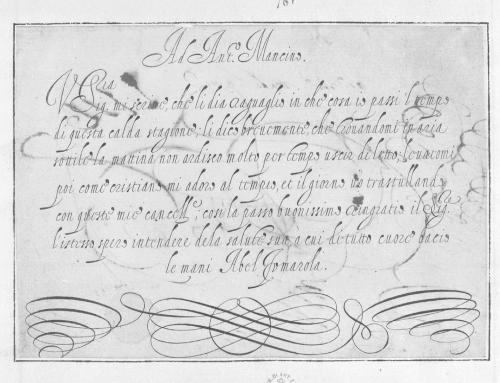 Ad Ant.º Mancino.
V. Sria
Sig. mi scrive, che li dia raguaglio in che cosa io passi l tempo
di questa calda stagione; li dico brevemente, che trovandomi in aria
sotile la matina non ardisco molto per tempo uscir di letto; levatomi
poi come cristiano mi adoro al tempio, et il giorno vo trastullando
con queste mie; cosi la passo buonissimo ringratio il Sig.re
l'istesso spero intendere dela salute sua a cui di tutto cuore bacio
le mani Abel